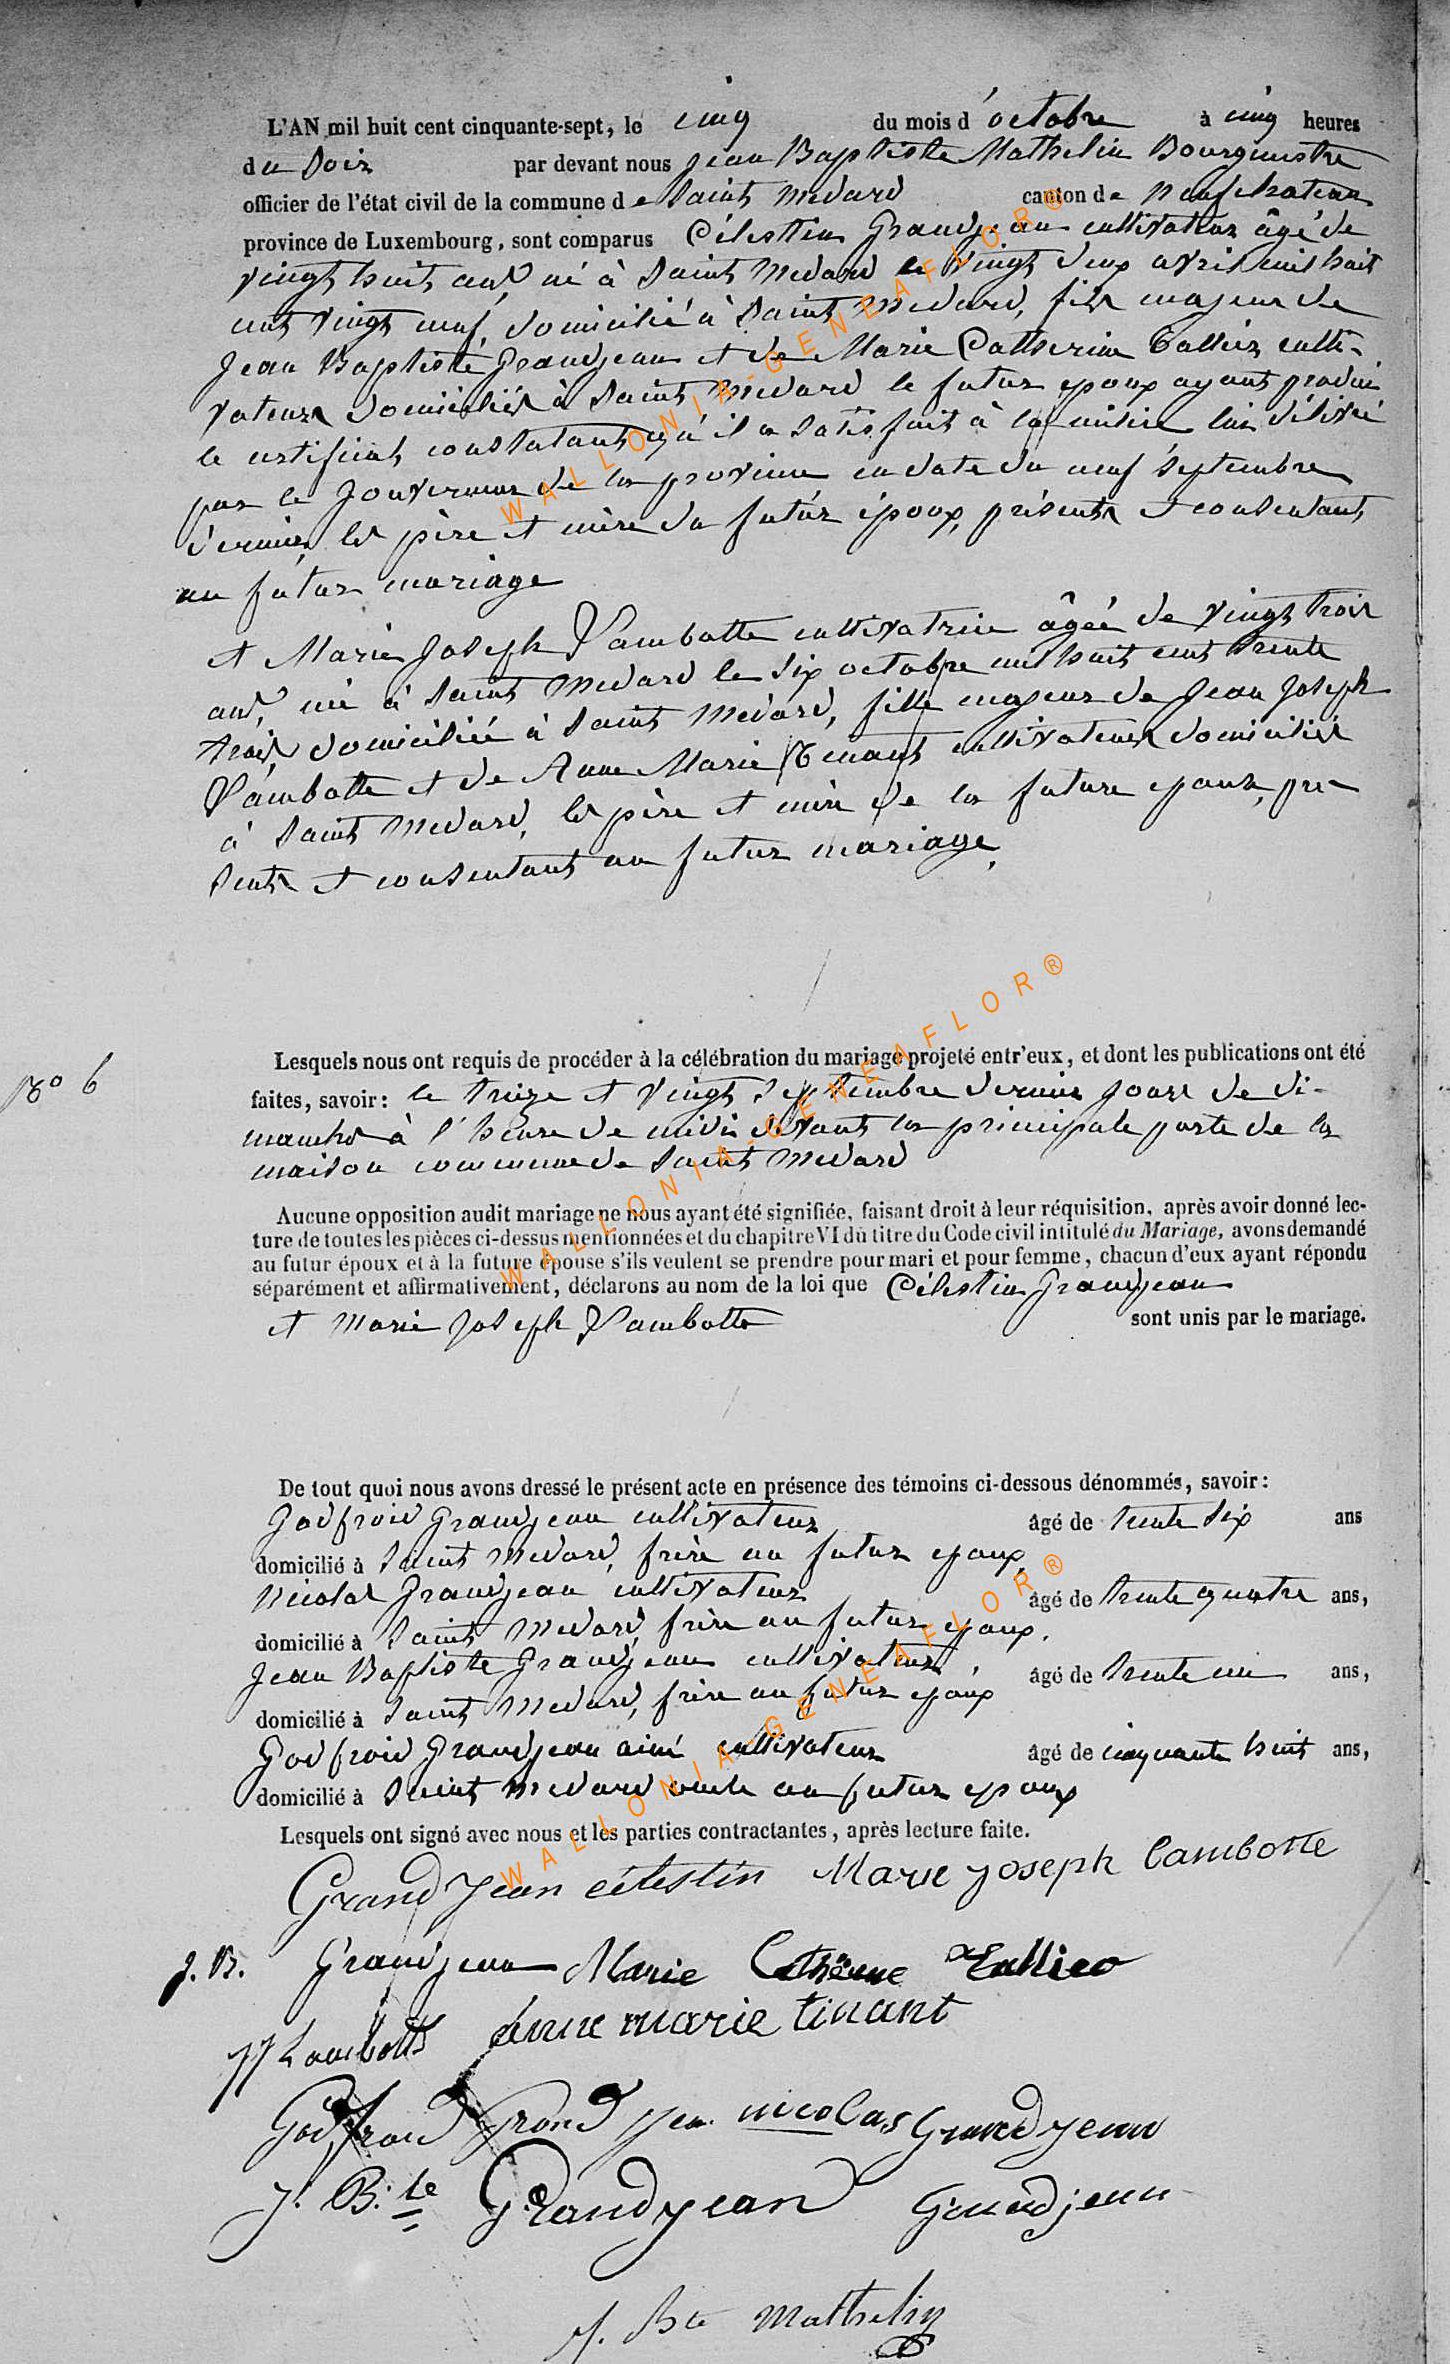 L'AN mil huit cent cinquante-sept, le cinq du mois d'octobre à cinq heures
du Soir par devant nous Jean Baptiste Mathelin Bourgmestre
officier de l'état civil de la commune de Saint Medard canton de Neufchateau
province de Luxembourg, sont comparus Célestin Grandjean cultivateur âgé de
vingt huit ans, né à Saint Medard le vingt deux avril mil huit
cent vingt neuf, domicilié à Saint Medard, fils majeur de
Jean Baptiste Grandjean et de Marie Catherine Tallier culti-
vateurs domiciliés à Saint Medard le futur epoux ayant produit
le certificat constatant qu'il a satisfait à la milice lui délivré
par le Gouverneur de la province en date du neuf Septembre
dernier, les père et mère du futur époux, présents et consentant
au futur mariage
et Marie Joseph Lambotte cultivatrice âgée de vingt trois
ans, née à Saint Medard le Six octobre mil huit cent trente
trois, domiciliée à Saint Medard, fille majeur de Jean Joseph
Lambotte et de Anne Marie Tinant cultivateurs domiciliés
à Saint Medard, les père et mère de la future epouse, pré-
sents et consentant au futur mariage,
No 6
Lesquels nous ont requis de procéder à la célébration du mariage projeté entr'eux, et dont les publications ont été
faites, savoir: le treize et vingt Septembre dernier jours de di-
manche à l'heure de midi devant la principale porte de la
maison commune de Saint Medard
Aucune opposition audit mariage ne nous ayant été signifiée, faisant droit à leur réquisition, après avoir donné lec-
ture de toutes les pièces ci-dessus mentionnées et du chapitre VI du titre du Code civil intitulé du Mariage, avons demandé
au futur époux et à la future épouse s'ils veulent se prendre pour mari et pour femme, chacun d'eux ayant répondu
séparément et affirmativement, déclarons au nom de la loi que Célestin Grandjean
et Marie Joseph Lambotte sont unis par le mariage.
De tout quoi nous avons dressé le présent acte en présence des témoins ci-dessous dénommés, savoir:
Godfroid Grandjean cultivateur âgé de trente Six ans
domicilié à Saint Medard, frère au futur epoux,
Nicolas Grandjean cultivateur âgé de trente quatre ans,
domicilié à Saint Medard, frère au futur epoux.
Jean Baptiste Grandjean cultivateur, âgé de trente un ans,
domicilié à Saint Medard, frère au futur epoux
Godfroid Grandjean ainé cultivateur âgé de cinquante huit ans,
domicilié à Saint Medard oncle au futur epoux
Lesquels ont signé avec nous et les parties contractantes, après lecture faite.
Grand Jean célestin Marie joseph Lambotte
J. B. Grandjean Marie
JJ Lambotte anne marie tinant
Godfroid Grand Jean nicolas Grandjean
J. B.te Grandjean Grandjean
J. Bte Mathelin
WALLONIA-GENEAFLOR®
WALLONIA-GENEAFLOR®
WALLONIA-GENEAFLOR®